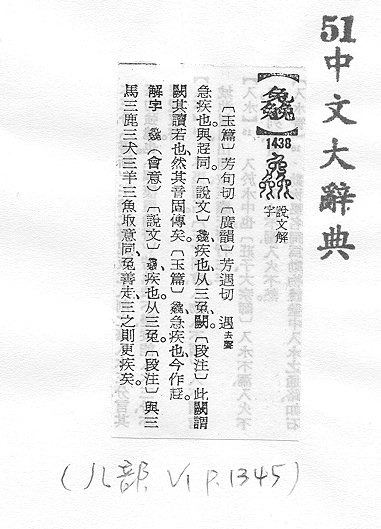 51
中文大辭典
【鱻】
1438
說文解字
〔玉篇〕芳句切〔廣韻〕芳遇切 遇去聲
急疾也、與趕同。〔說文〕疾也、从三兔、闕。〔段注〕此闕謂
闕其讀若也、然其音固傳矣。〔玉篇〕急疾也、今作趕。
解字 (會意)〔說文〕疾也。从三兔。〔段注〕與三
馬三鹿三犬三羊三魚取意同、兔善走、三之則更疾矣。
(儿部 V1 P.1345)